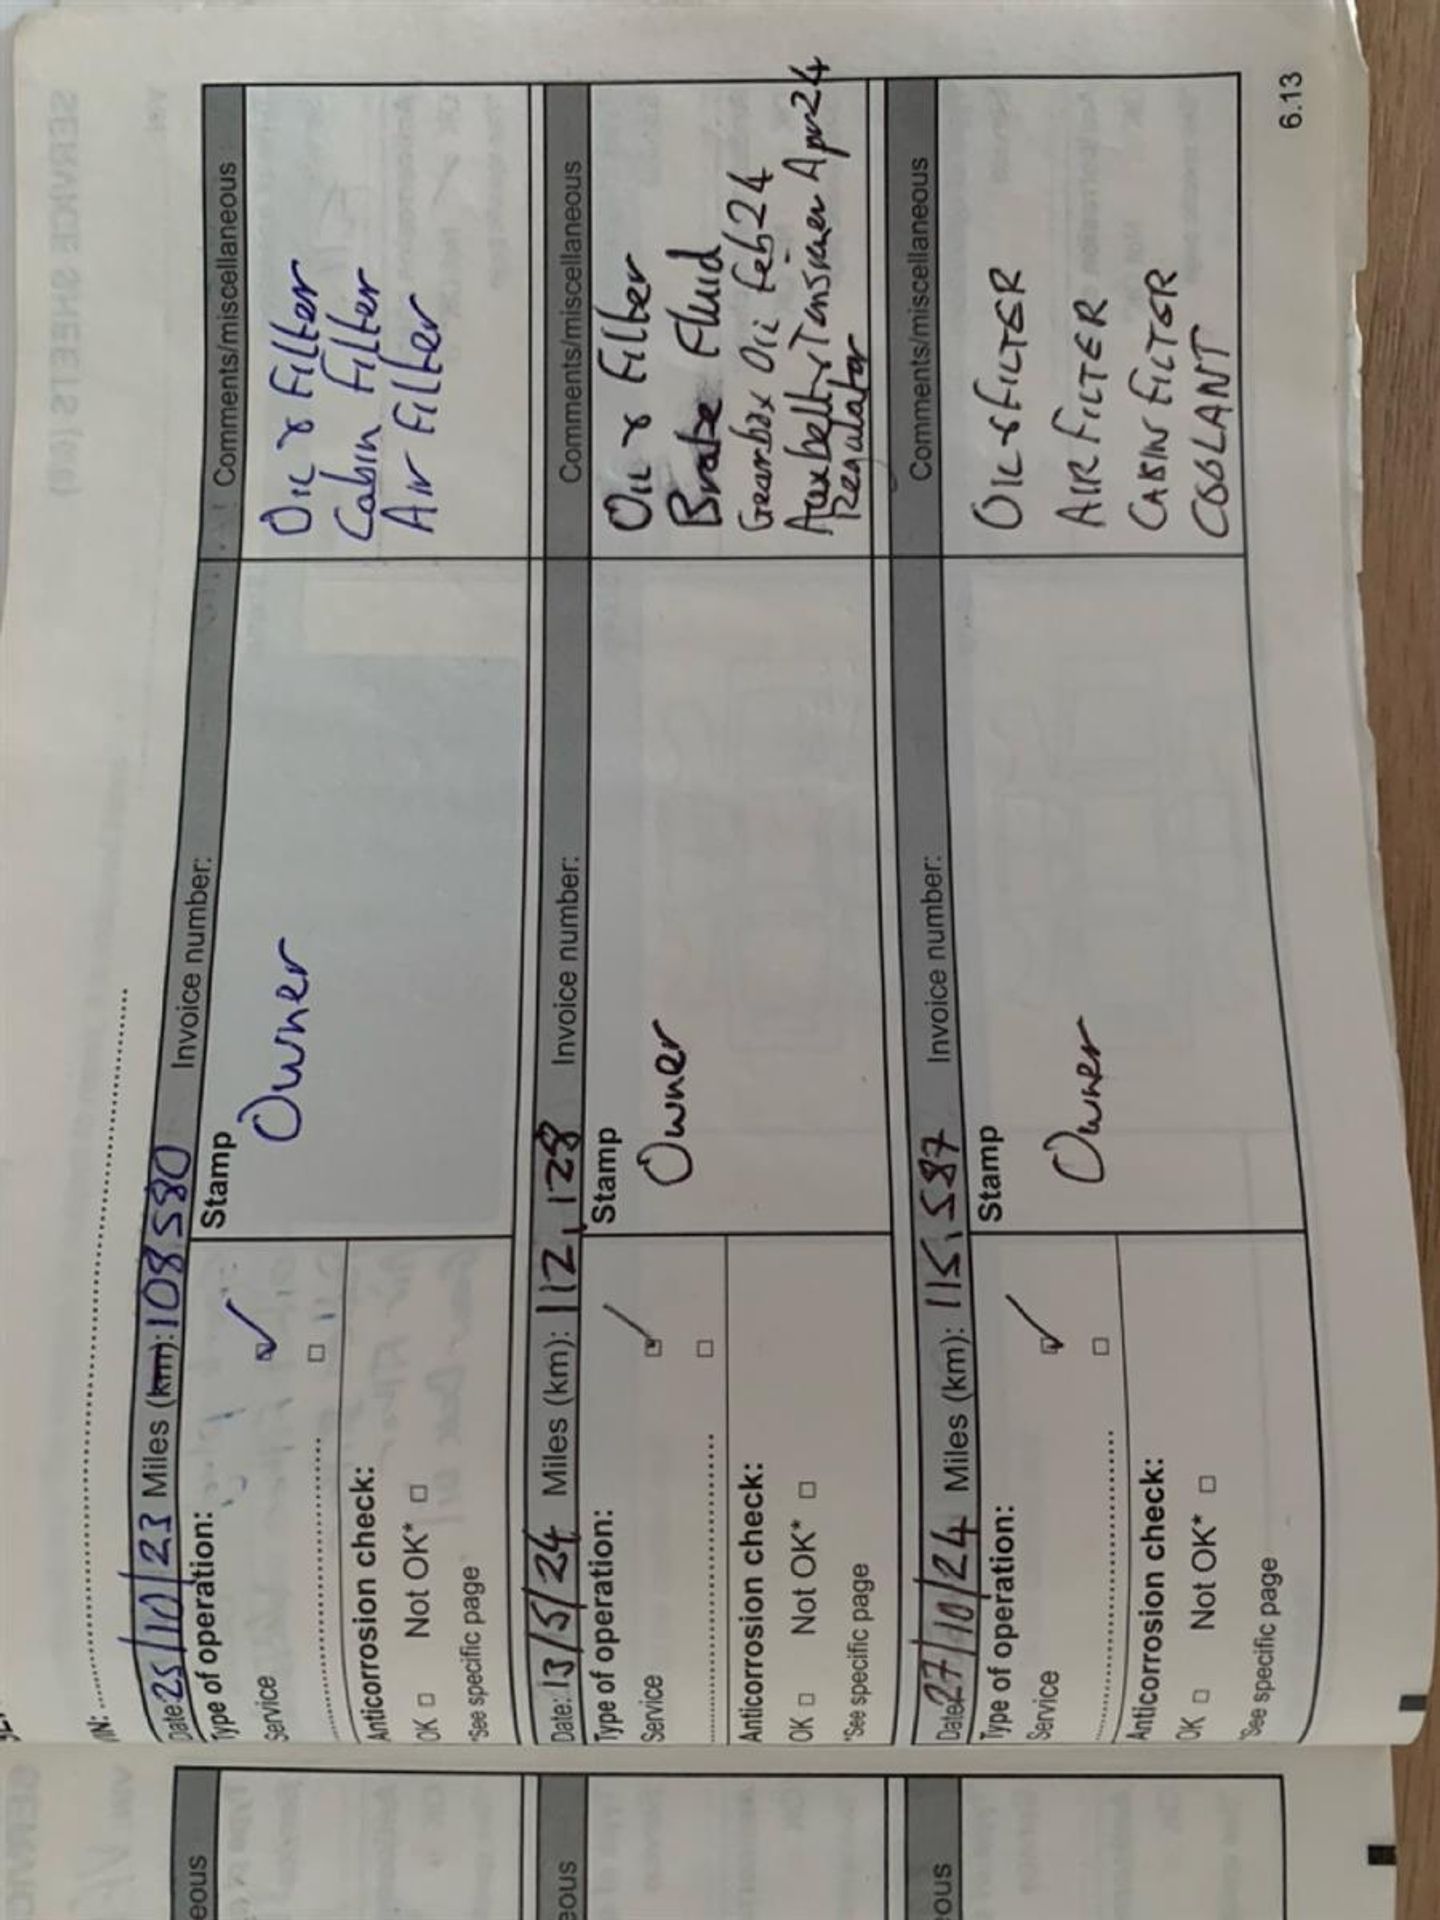 VIN:
Date: 25/10/23 Miles (km): 108580 Invoice number: Comments/miscellaneous
Type of operation:
Service
Stamp
Owner
Oil & Filter
Cabin Filter
Air Filter
Anticorrosion check:
OK □ Not OK* □
*See specific page
Date: 13/5/24 Miles (km): 112,128 Invoice number: Comments/miscellaneous
Type of operation:
Service
Stamp
Owner
Oil & Filter
Brake Fluid
Gearbox Oil Feb 24
Aux belt & Tensioner Apr 24
Regulator
Anticorrosion check:
OK □ Not OK* □
*See specific page
Date: 27/10/24 Miles (km): 115,587 Invoice number: Comments/miscellaneous
Type of operation:
Service
Stamp
Owner
OIL & FILTER
AIR FILTER
CABIN FILTER
COOLANT
Anticorrosion check:
OK □ Not OK* □
*See specific page
6.13
eous
eous
eous